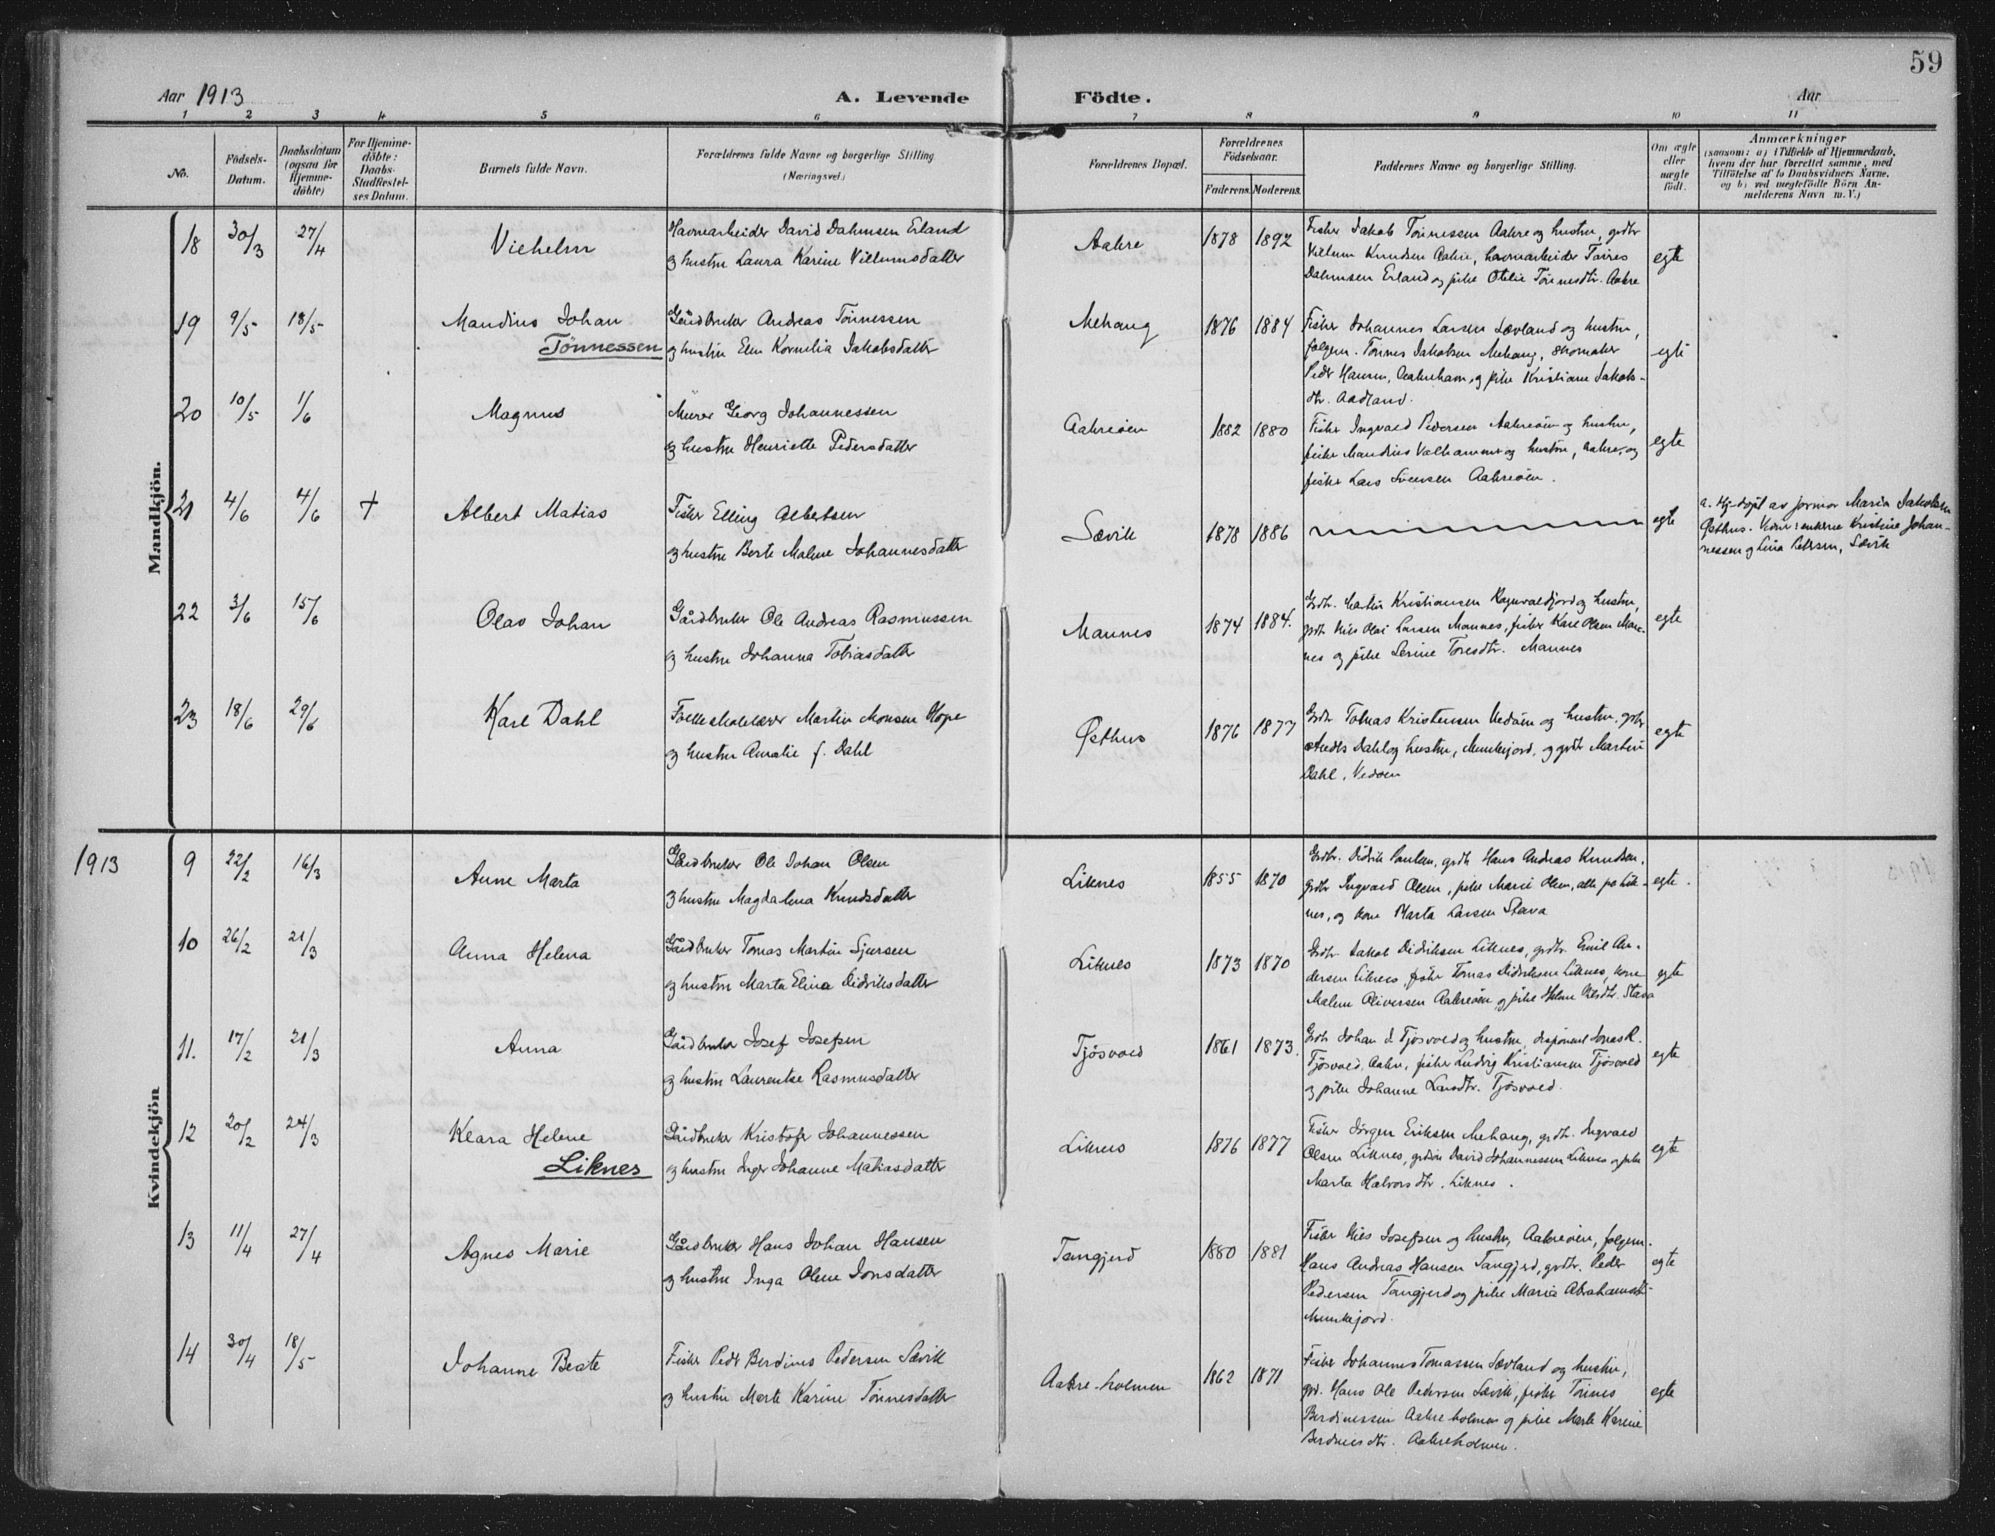 59
Aar 1913
A. Levende
Födte.
Aar
1 2 3 4 5 6 7 8 9 10 11
No.
Födsels-
Datum.
Daabsdatum
(ogsaa for
Hjemme-
döbte)
For Hjemme-
döbte:
Daabs-
Stadfæstel-
ses Datum.
Barnets fulde Navn.
Forældrenes fulde Navne og borgerlige Stilling
(Næringsvei.)
Forældrenes Bopæl.
Forældrenes
Födselsaar.
Faderens. Moderens.
Faddernes Navne og borgerlige Stilling.
Om ægte
eller
uægte
født.
Anmærkninger
(saasom: a) i Tilfælde af Hjemmedaab,
hvem der har forrettet samme, med
Tilföielse af to Daabsvidners Navne.
og b) ved uægtefödte Börn An-
melderens Navn m.V.)
Mandkjön.
18 30/3 27/4 Vilhelm
Havnearbeider David Dahmsen Erland
og hustru Laura Karine Villumsdatter
Aakre 1878 1892
Fisker Jakob Tønnessen Aakre og hustru, grdbr
Villum Knudsen Aakre, havnearbeider Tønnes
Dahmsen Erland og pike Otilie Tønnesdtr. Aakre
egte
19 9/5 18/5 Mandius Johan
Tønnessen
Gårdbruker Andreas Tønnessen
og hustru Elen Kornelia Jakobsdatter
Mehaug 1876 1884
Fisker Johannes Larsen Sævland og hustru,
folgem. Tønnes Jakobsen Mehaug, skomaker
Peder Hansen, Aakrehavn, og pike Kristiane Jakobs-
dtr. Aadland.
egte
20 10/5 1/6 Magnus
Murer Georg Johannessen
og hustru Henriette Pedersdatter
Aakreøen 1882 1880
Fisker Ingvald Pedersen Aakreøen og hustru,
fisker Mandius Valhammer og hustru, Aakre, og
fisker Lars Svensen Aakreøen.
egte
21 4/6 4/6 + Albert Matias
Fisker Elling Albertsen
og hustru Berte Malene Johannesdatter
Sævik 1878 1886
egte
a. Hj.døpt av jormor Maria Jakobsen
Østhus. Vidner: enkerne Kristine Johan-
nessen og Lina Pedersen, Sævik
22 3/6 15/6 Olav Johan
Gårdbruker Ole Andreas Rasmussen
og hustru Johanna Tobiasdatter
Mannes 1874 1884.
Grdbr. Martin Kristiansen Ragnvaldjord og hustru,
grdbr Nils Olai Larsen Mannes, fisker Karl Olsen Man-
nes og pike Serine Toresdtr. Mannes
egte
23 18/6 29/6 Karl Dahl
Folkeskolelærer Martin Monsen Hope
og hustru Amalie f. Dahl
Østhus 1876 1877
Grdbr Tobias Kristensen Vedøen og hustru, grdbr
Dahl og hustru, Munkejord, og grdbr Martin
Dahl, Vedøen
egte
1913
Kvindekjön
9 22/2 16/3 Anne Marta
Gårdbruker Ole Johan Olsen
og hustru Magdalena Knudsdatter
Liknes 1855 1870
Grdbr. Didrik Paulsen, grdbr Hans Andreas Knudsen,
grdbr Ingvald Olsen, pike Marie Olsen, alle på Lik-
nes, og kone Marta Larsen Stava
egte.
10 26/2 21/3 Anna Helena
Gårdbruker Tomas Martin Sjursen
og hustru Marta Elina Didriksdatter
Liknes 1873 1870
Grdbr Jakob Didriksen Liknes, grdbr. Emil An-
dersen Liknes, fisker Tomas Didriksen Liknes, kone
Malene Oliversen Aakreøen, og pike Helene Nilsdtr. Stava
egte
11. 17/2 21/3 Anna
Gårdbruker Josef Josefsen
og hustru Laurentse Rasmusdatter
Tjøsvold 1861 1873.
Grdbr Johan J. Tjøsvold og hustru, disponent Jonas R.
Tjøsvold, Aakre, fisker Ludvig Kristiansen Tjøsvold
og pike Johanne Larsdtr. Tjøsvold.
egte
12 20/2 24/3 Klara Helene
Liknes
Gårdbruker Kristofer Johannessen
og hustru Inger Johanne Matiasdatter
Liknes 1876 1877
Fisker Jørgen Eriksen Mehaug, grdbr. Ingvald
Olsen Liknes, grdbr David Johannessen Liknes og pike
Marta Halvorsdtr. Liknes.
egte
13 11/4 27/4 Agnes Marie
Gårdbruker Hans Johan Hansen
og hustru Inga Oline Jonsdatter
Tangjerd 1880 1881
Fisker Nils Josefsen og hustru, Aakreøen, folgem.
Hans Andreas Hansen Tangjerd, grdbr. Peder
Pedersen Tangjerd og pike Maria Abrahamsdtr.
Munkejord.
egte
14 30/4 18/5 Johanne Beate
Fisker Peder Berdines Pedersen Sævik
og hustru Marte Karine Tønnesdatter
Aakre-holmen 1862 1871
Fisker Johannes Tomassen Sævland og hustru,
grd. Hans Ole Pedersen Sævik, fisker Tønnes
Berdinessen Aakreholmen og pike Marte Karine
Berdinesdtr. Aakreholmen.
egte